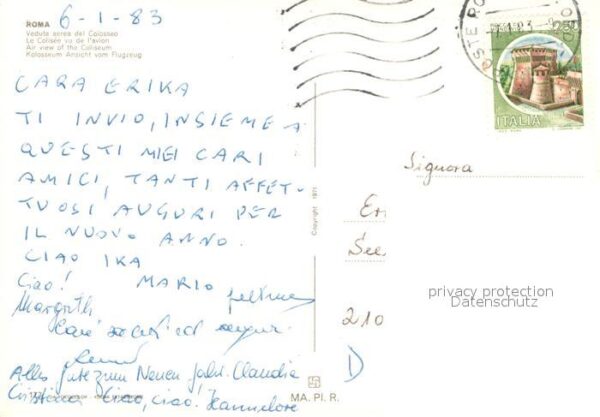 ROMA
6-1-83
Veduta aerea del Colosseo
Le Colisée vu de l'avion
Air view of the Coliseum
Kolosseum Ansicht vom Flugzeug
CARA ERIKA
TI INVIO, INSIEME A
QUESTI MIEI CARI
AMICI, TANTI AFFET-
TUOSI AUGURI PER
IL NUOVO ANNO.
CIAO IKA
MARIO
Ciao!
Margrith
Alles gute zum Neuen Jahr. Claudia
Cristina Ciao, ciao. Hannelore
Copyright 1971
MA. PI. R.
ITALIA
Signora
Er
See
210
D
privacy protection
Datenschutz